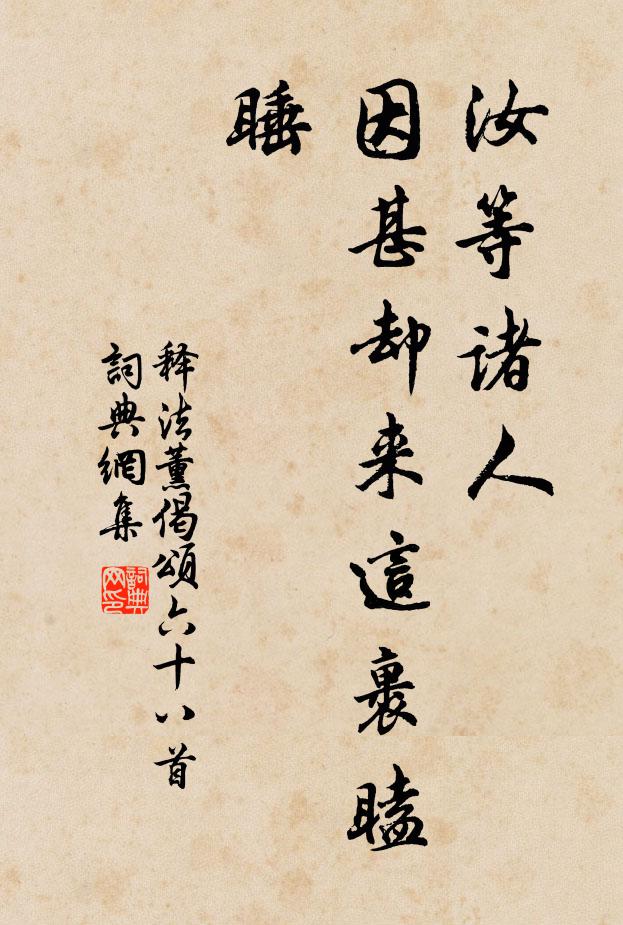 汝等诸人
因甚却来這裏瞌
睡
释法薰偈頌六十八首
詞典網集
詞典
网印